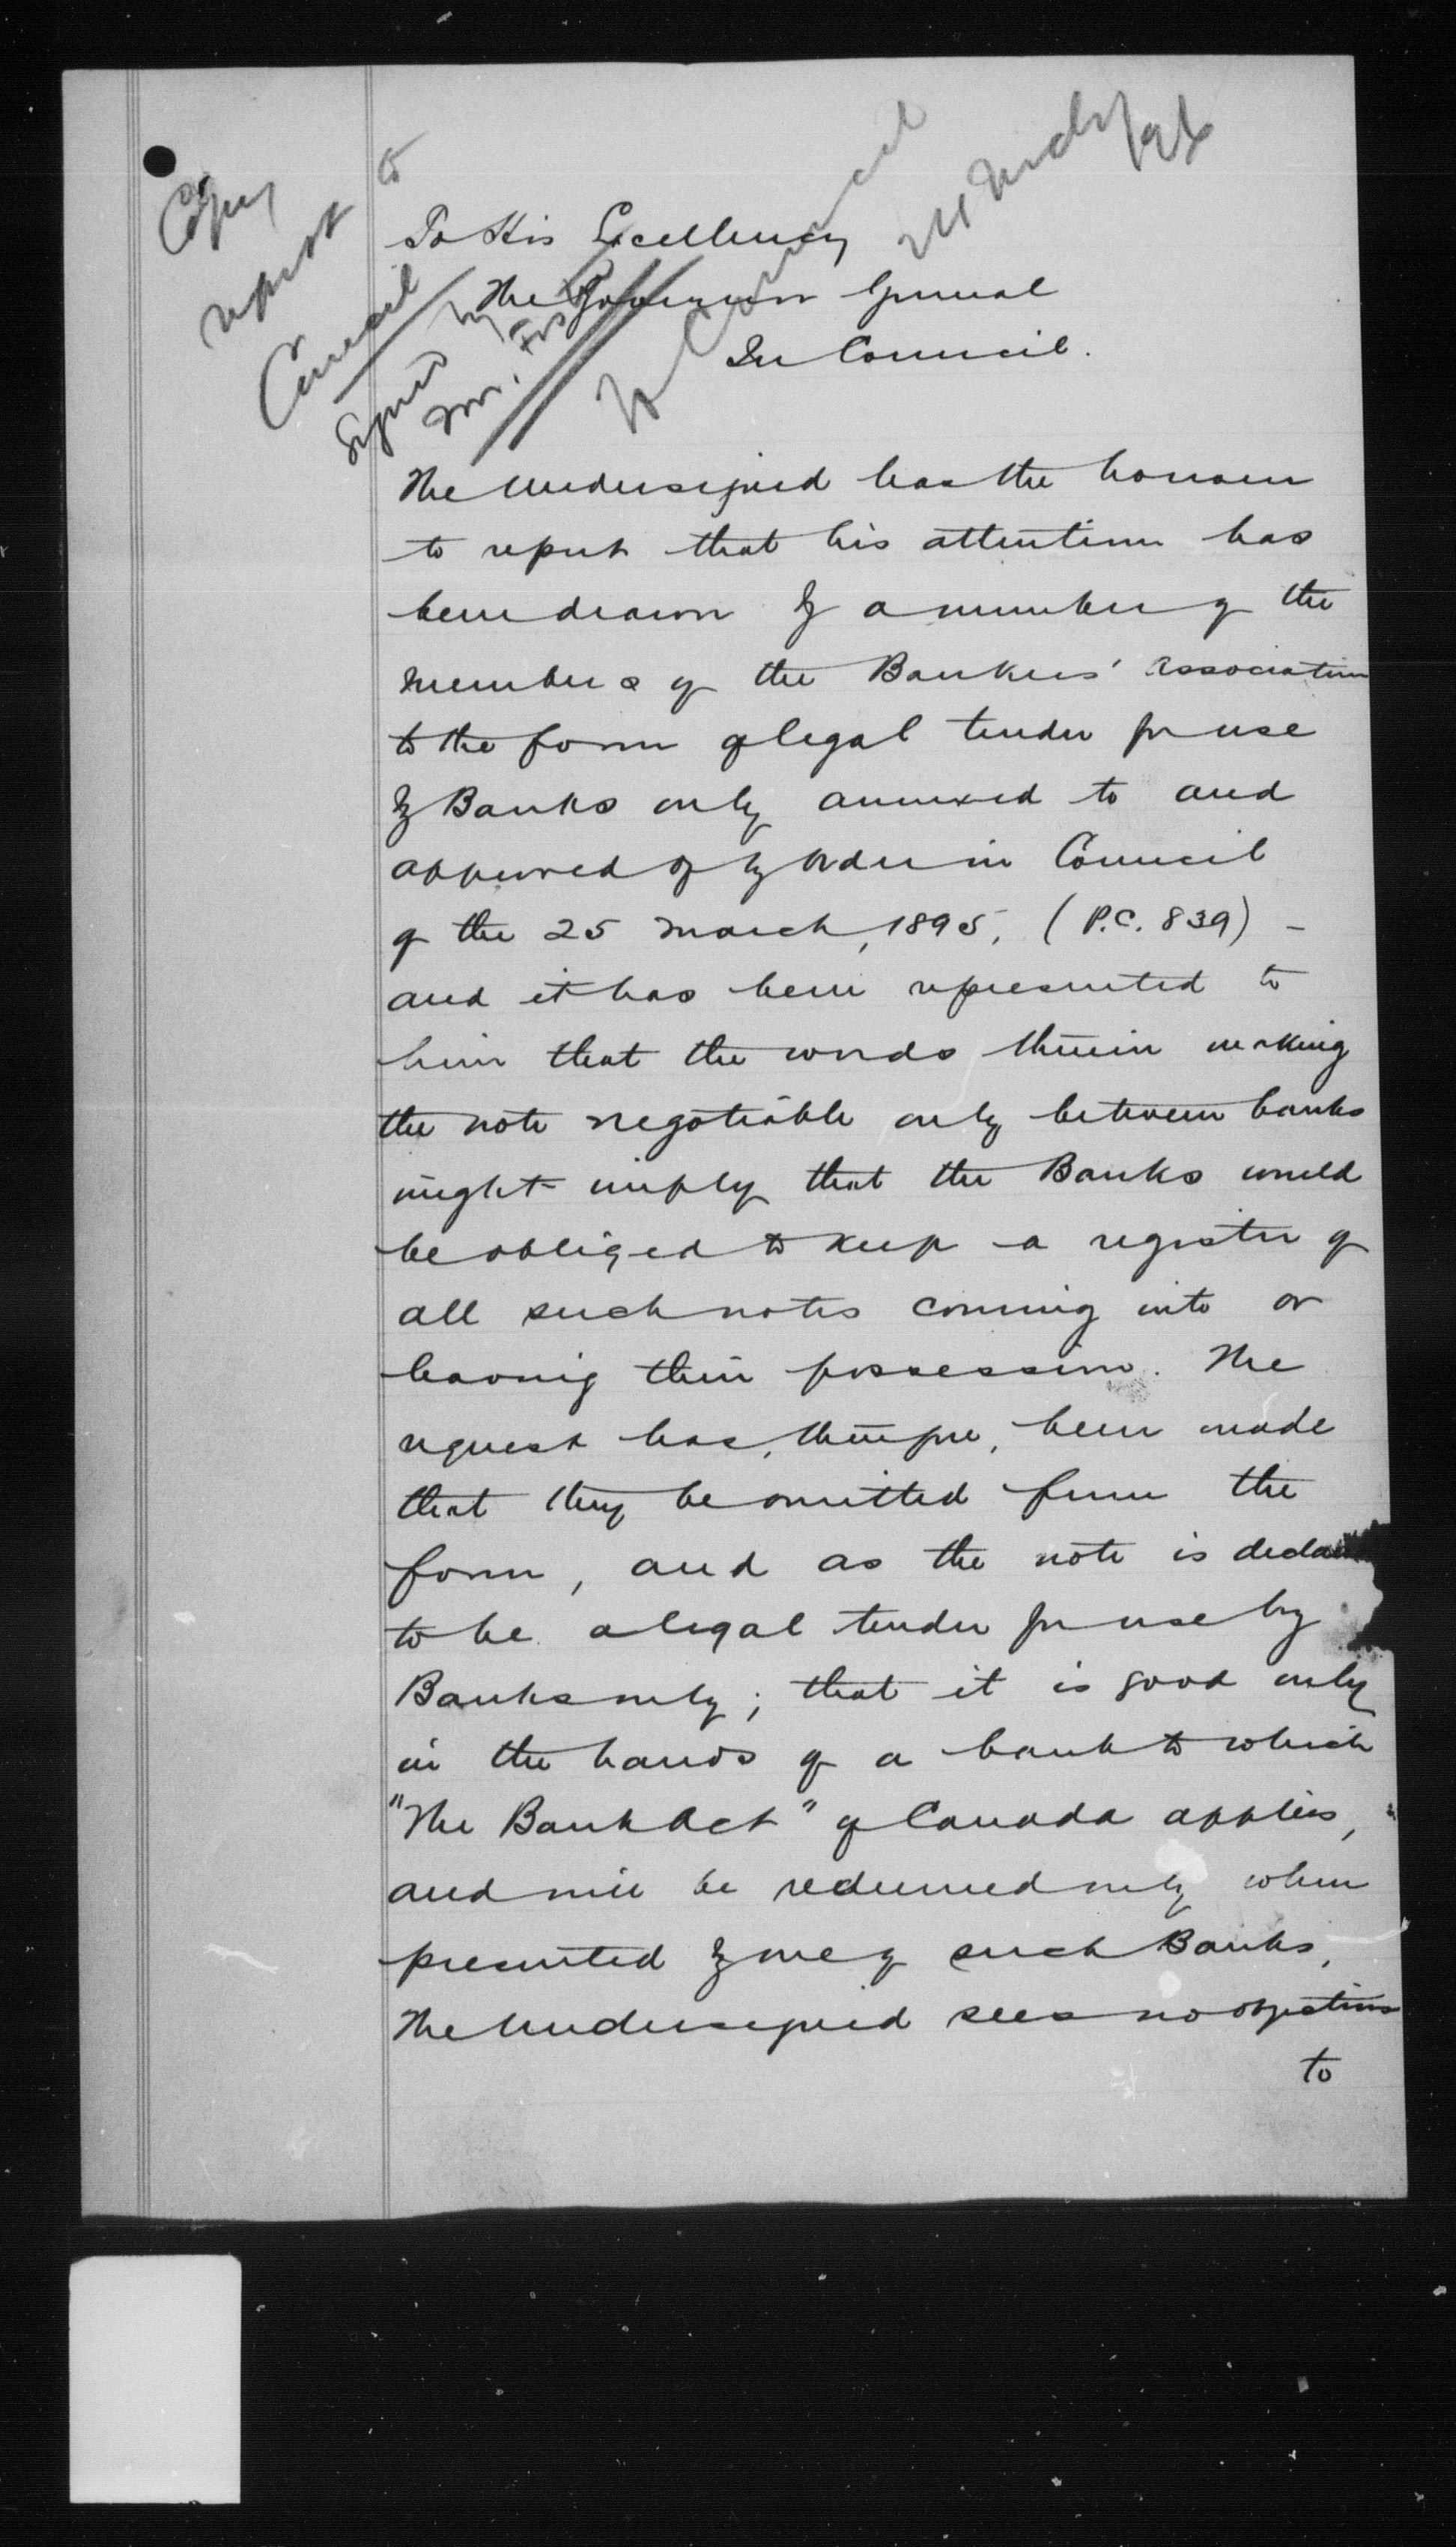 Copy
report to
Council
Signed by
Mr. Fos
In Council
24 Mch/96
To His Excellency
The Governor General
In Council.
The Undersigned has the honour
to report that his attention has
been drawn by a number of the
members of the Bankers' Association
to the form of legal tender for use
by Banks only annexed to and
approved of by Order in Council
of the 25 March, 1895, (P.C. 839) –
and it has been represented to
him that the words therein making
the note negotiable only between banks
might imply that the Banks would
be obliged to keep a register of
all such notes coming into or
leaving their possession. The
request has, therefore, been made
that they be omitted from the
form, and as the note is
to be a legal tender for use by
Banks only; that it is good only
in the hands of a bank to which
"The Bank Act" of Canada applies,
and will be redeemed only when
presented by one of such Banks,
The Undersigned sees no objections
to